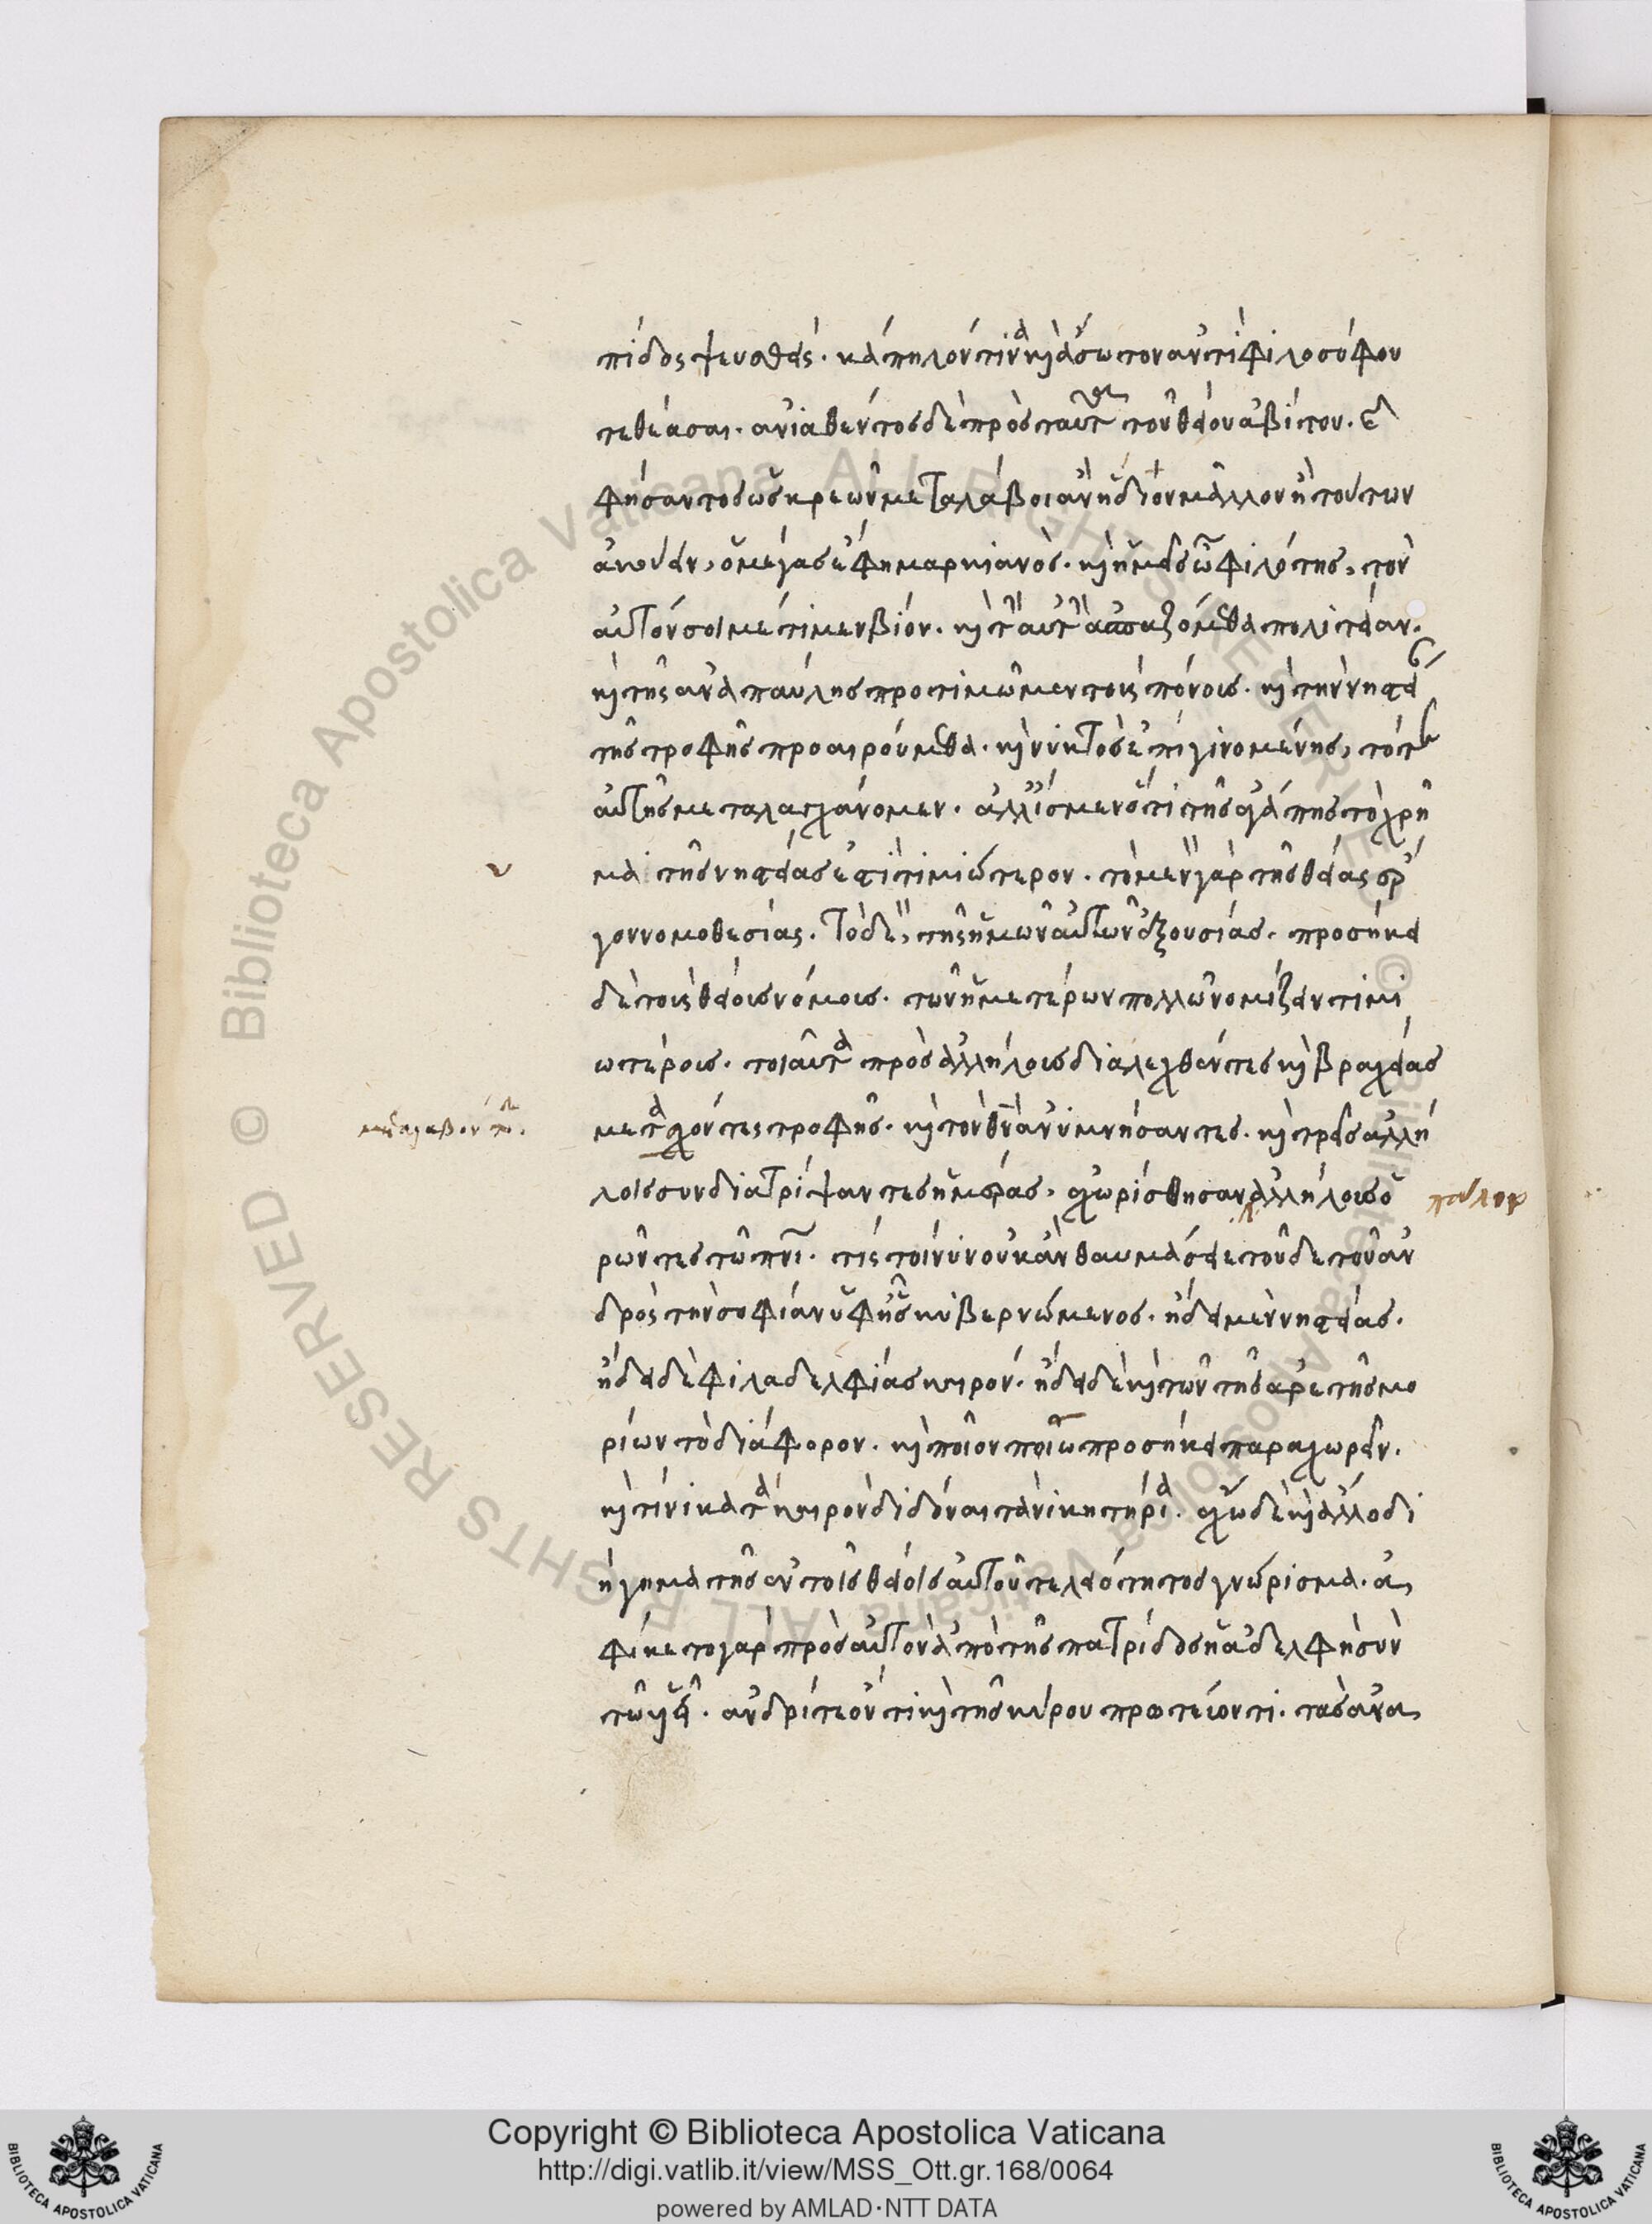 πίδος ψευσθείς. κάπηλόν τινα καὶ ἄσωτον ἀντὶ φιλοσόφου
τεθέασαι. ἀνιαθέντος δὲ πρὸς ταῦτα τοῦ θείου ἀβίτου. καὶ
φήσαντος ὡς κρεῶν μεταλάβοι ἂν ἥδιον μᾶλλον ἢ τούτων
ἀκούειν, ὁ μέγας ἔφη μαρκιανὸς. καὶ ἡμεῖς ὦ φιλότης, τὸν
αὐτόν σοι μέτιμεν βίον. καὶ τὴν αὐτὴν ἀσπαζόμεθα πολιτείαν.
καὶ τῆς ἀναπαύλης προτιμῶμεν τοὺς πόνους. καὶ τὴν νηστείαν
τῆς τροφῆς προαιρούμεθα. καὶ νυκτὸς ἐπιγινομένης, τότε
αὐτῆς μεταλαγχάνομεν. ἀλλ' ἴσμεν ὅτι τῆς ἀγάπης τὸ χρῆ
μα τῆς νηστείας ἐστὶ τιμιώτερον. τὸ μὲν γὰρ τῆς θείας ἔρ
γον νομοθεσίας. τὸ δὲ, τῆς ἡμῶν αὐτῶν ἐξουσίας. προσήκει
δὲ τοὺς θείους νόμους. τῶν ἡμετέρων πολλῷ νομίζειν τιμι
ωτέρους. τοιαῦτα πρὸς ἀλλήλους διαλεχθέντες καὶ βραχείας
μετασχόντες τροφῆς. καὶ τὸν θν ἀνυμνήσαντες. καὶ τρεῖς ἀλλή
λοις συνδιατρίψαντες ἡμέρας, ἐχωρίσθησαν ἀλλήλους ὁ
ρῶντες τῷ πνι. τίς τοίνυν οὐκ ἂν θαυμάσειε τοῦδε τοῦ ἀν
δρὸς τὴν σοφίαν ὑφ' ἧς κυβερνώμενος. ᾔδει μὲν νηστείας.
ᾔδει δὲ φιλαδελφίας καιρόν. ᾔδει δὲ καὶ τῶν τῆς ἀρετῆς μο
ρίων τὸ διάφορον. καὶ ποῖον ποίῳ προσήκει παραχωρεῖν.
καὶ τίνι κατὰ καιρὸν διδόναι τὰ νικητήρια. ἔχω δὲ καὶ ἄλλο δι
ήγημα τῆς ἐν τοῖς θείοις αὐτοῦ τελειότητος γνώρισμα. ἀ
φίκετο γὰρ πρὸς αὐτὸν ἀπὸ τῆς πατρίδος ἡ ἀδελφὴ σὺν
τῷ υἱεῖ. ἀνδρί τε ὄντι καὶ τῆς κύρου πρωτεύοντι. τὰς ἀνα